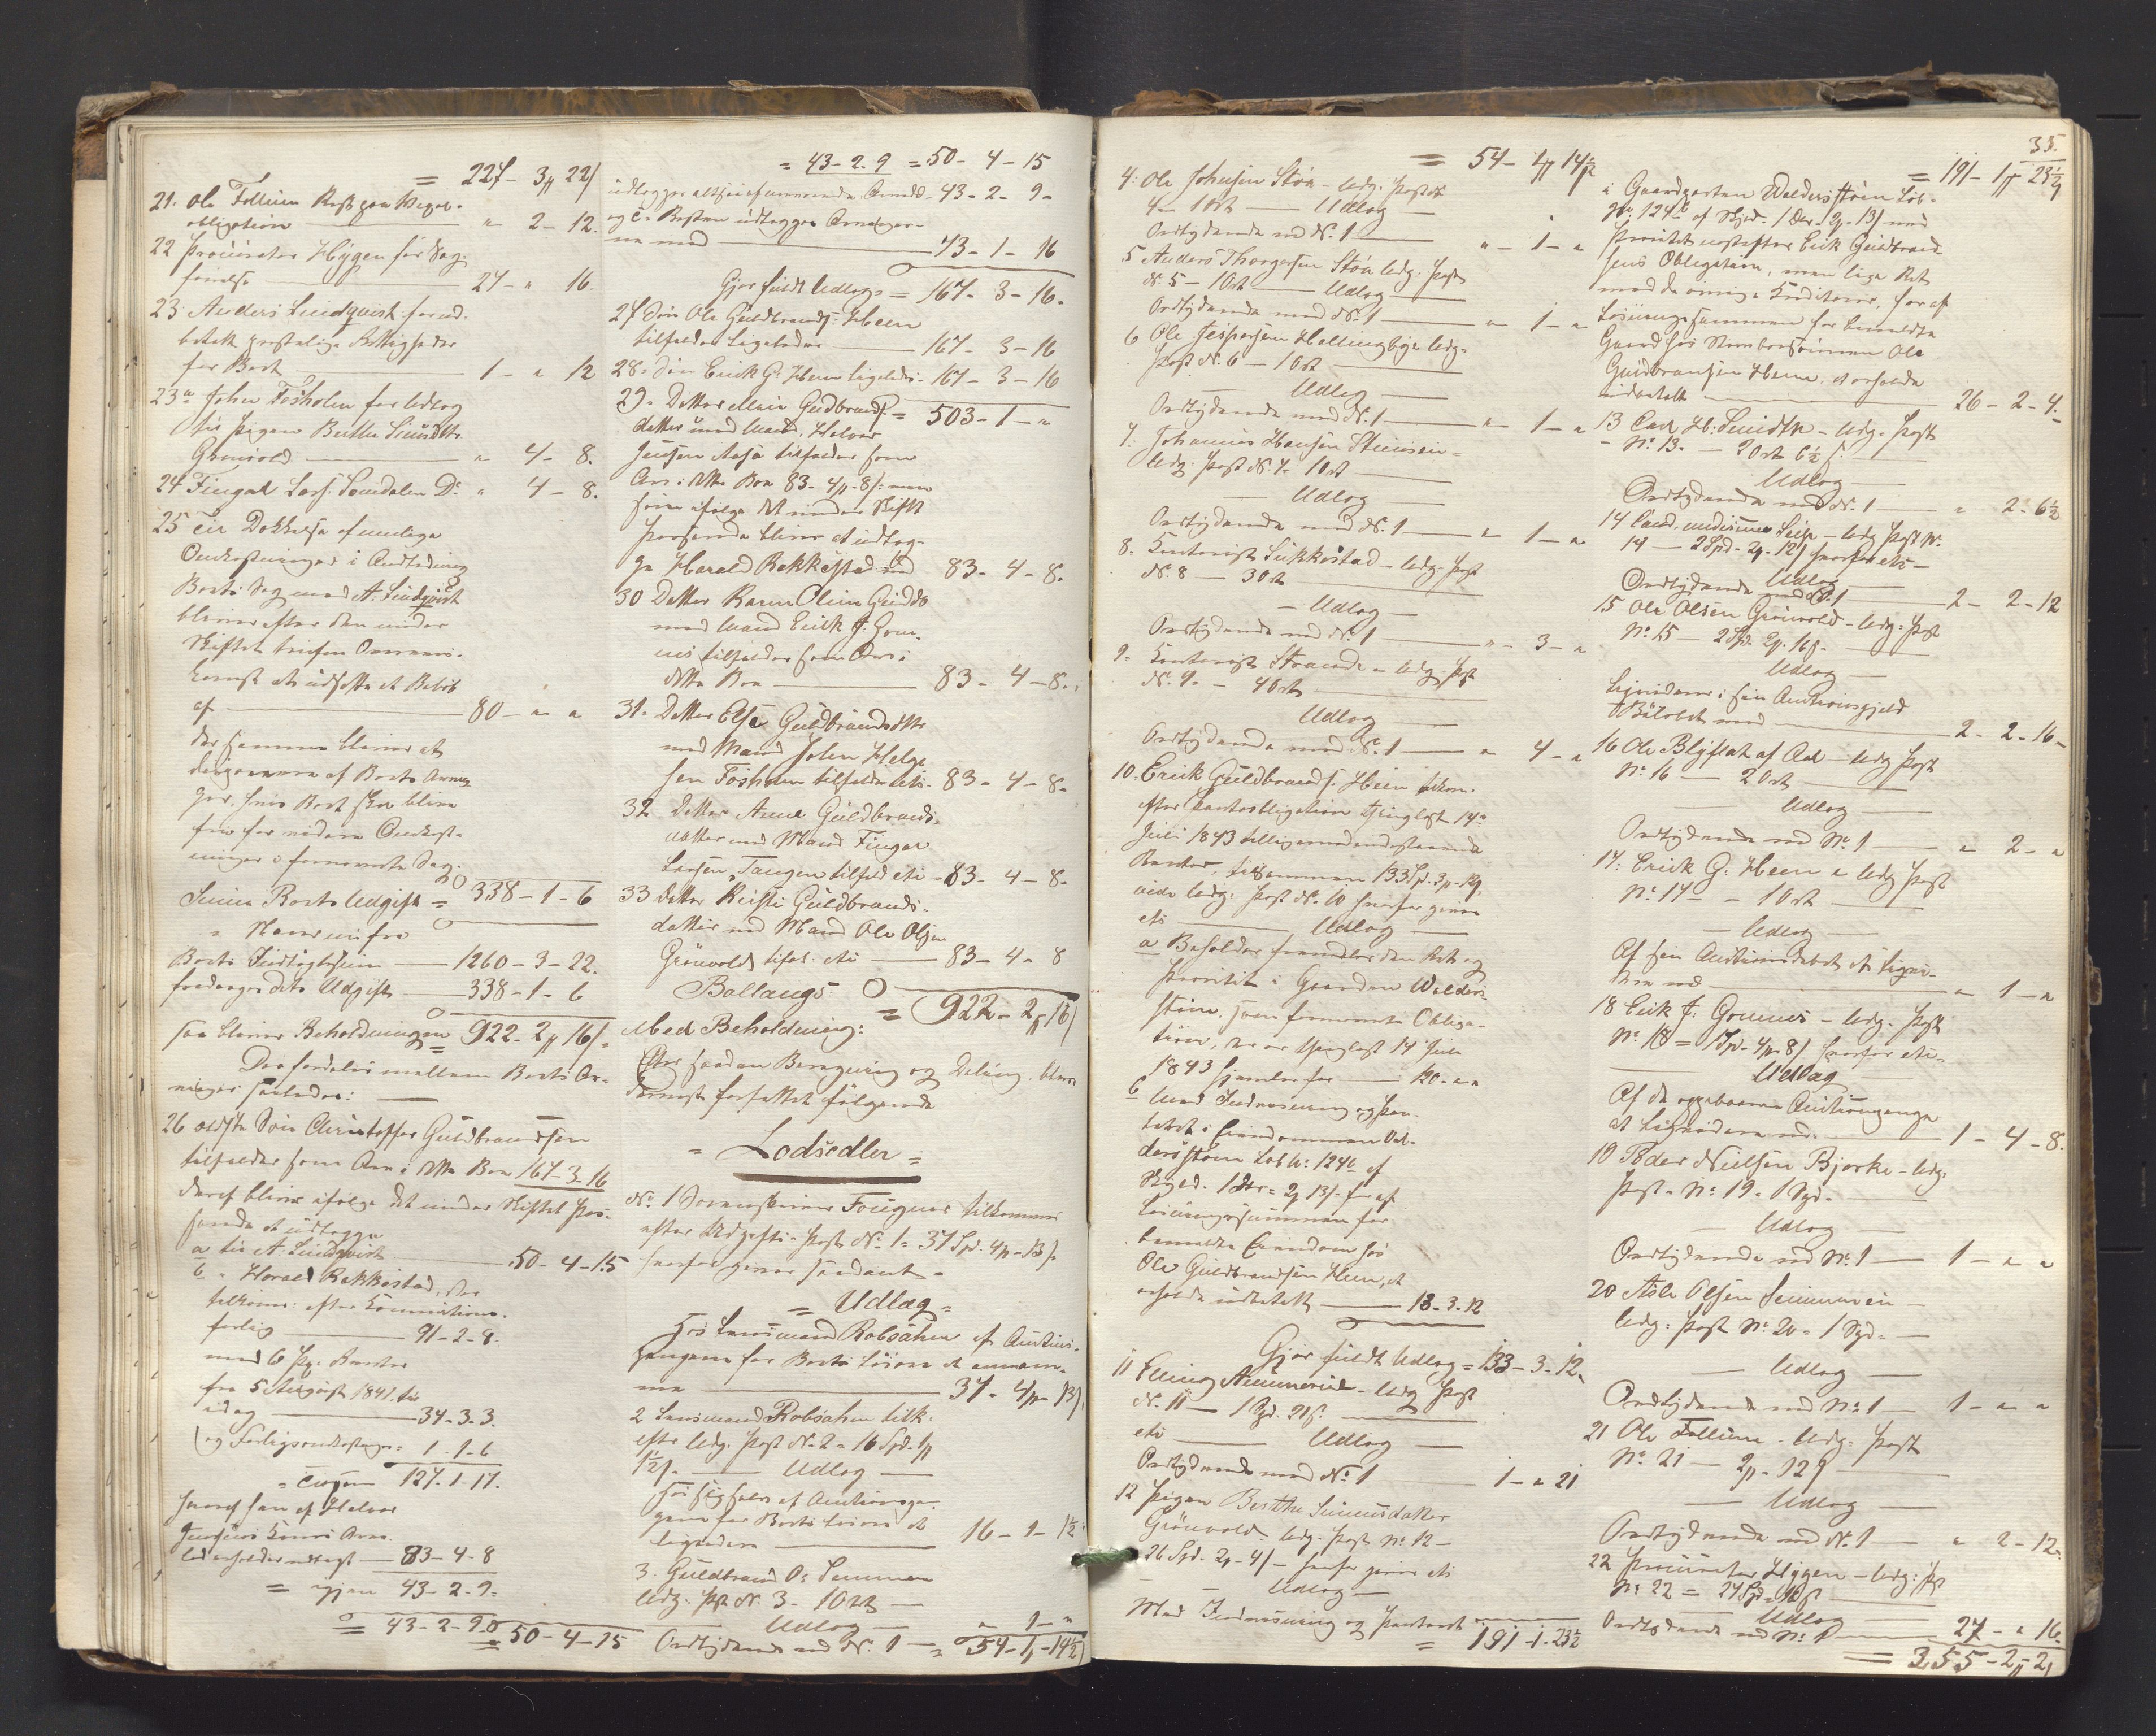 = 227 - 3 # 22/
21. Ole Follum Rest paa Vexel-
obligation " 2 - 12.
22 Procurator Hygen for Sag-
førelse 27 - " 16.
23. Anders Lindqvist forud-
betalt
for Boet 1 - " 12
23a John Fosholm for Udlæg
til Pigen Berthe Simensdtr.
Grønvold " 4 - 8.
24 Fingal Lars. Semdalen Do " 4 - 8.
25 Til Dækkelse af muelige
Omkostninger i Anledning
Boets Sag med A: Lindqvist
bliver efter den under
Skiftet trufne Overeens-
komst at udsætte et Beløb
af 80 - " "
der samme bliver at
disponere af Boets Arvin-
ger, hvis Boet skal blive
frie for videre Omkost-
ninger i fornævnte Sag.
Summa Boets Udgift = 338 - 1 - 6
Naar nu fra
Boets Indtægtssum 1260 - 3 - 22.
fradrages dets Udgift 338 - 1 - 6
saa bliver Beholdningen = 922 - 2 # 16/.
Der fordeles mellem Boets Ar-
vinger saaledes:
26 ældste Søn Christopher Guldbrandsen
tilfalder som Arv i dette Boe 167 - 3 - 16
deraf bliver ifølge det under Skiftet Pas-
serede at udlægge
a til A: Lindqvist 50 - 4 - 15
b " Harald Rækkestad, der
tilkom: efter Commissions-
forlig 91 - 2 - 8.
med 6 pC: Renter
fra 5 August 1841 til
idag 34 - 3 - 3.
og Forligsomkostninger = 1 - 1 - 6
= tilsammen 127 - 1 - 17.
hvoraf han af Halvor
Jensens Kones Arve-
lod erholder udlagt 83 - 4 - 8
= igjen 43 - 2 - 9.
= 43 - 2 - 9. = 50 - 4 - 15
= 43 - 2 - 9 = 50 - 4 - 15
udlægges altsaa af nærværende Arvelod 43 - 2 - 9 -
og c. Resten udlægges Arvinge-
ne med 73 - 1 - 16
Gjør fuldt Udlæg = 167 - 3 - 16.
27 Søn Ole Guldbrands: Heen
tilfalder ligeledes 167 - 3 - 16
28. Søn Erick G: Heen ligeledes - 167 - 3 - 16
= 503 - 1 - "
29. Datter Marie Guldbrands-
datter med Mand Halvor
Jensen Aasa tilfalder som
Arv i dette Boe 83 - 4 # - 8/: men
som ifølge det under Skiftet
Passerede bliver at udlæg-
ge Harald Rækkestad med 83 - 4 - 8.
30 Datter Karen Oline Guldbds
med Mand Erick J. Grøn-
næs tilfalder som Arv i
dette Boe 83 - 4 - 8.
31. Datter Else Guldbrandsdtr
med Mand John Helge-
sen Fosholm tilfalder ets. 83 - 4 - 8.
32 Datter Anne Guldbrands-
datter med Mand Fingar
Larsen Tangen tilfald ets - 83 - 4 - 8.
33 Datter Kirsti Guldbrands-
datter med Mand Ole Olsen
Grønvold tilfal. ets 83 - 4 - 8
Ballangs = 922 - 2 # 16/
Med Beholdning:
Efter saadan Beregning og Deling bleve
dernæst forfattet følgende
= Lodsedler =
No 1 Sorenskriver Fougner tilkommer
efter Udgifts - Post No 1 = 37 Spd. 4 # - 13/.
hvorfor gives saadant -
= Udlæg =
Hos Lensmand Robsahm af Auctions-
pengene for Boets Løsøre at annam-
me 37 - 4 # - 13/.
2 Lensmand Robsahm tilk.
efter Udg. Post No 2 = 16 Spd. 1 #
1½/. Udlæg
Hos sig selv af Auctionspen-
gene for Boets Løsøre at
liqvidere 16 - 1 - 1½
3. Guldbrand O: Semmen
Udg: Post No 3 - 1 Ort
Udlæg " 1 - "
Ordlydende med No 1 = 54 - 1 # - 14½/
35.
= 54 - 1 # 14½
4. Ole Johnsen Støa - Udg: Post No
4 - 1 Ort Udlæg
Ordlydende med No 1 " - 1 - "
5 Anders Thorgersen Støa Udg: Post
No 5 - 1 Ort Udlæg
Ordlydende med No 1 " - 1 - "
6 Ole Jespersen Hallingbye Udg.
Post No 6 - 1 Ort
Udlæg
Ordlydende med No 1 " - 1 - "
7. Johannes Hansen Steensen -
Udg: Post No 7 - 1 Ort
Udlæg
Ordlydende med No 1 " 1 - "
8. Contorist Sukkestad - Udg: Post
No 8 - 3 Ort
- Udlæg -
Ordlydende med No 1 " - 3 - "
9. Contorist Strande - Udg: Post
No 9. - 4 Ort
Udlæg
Ordlydende med No 1 " 4 - "
10. Erick Guldbrands: Heen tilkom.
efter Panteobligation thinglæst 14de
Juli 1843 tilligemed endestaaende
Renter, tilsammen 133 Sp. 3 # - 12/.
vide Udg: Post No 10 hvorfor gives
ets Udlæg
a Beholder fremdeles den Ret og
Prioritet i Gaarden Walders-
strøm, som fornævnte Obliga-
tion, der er thinglæst 14 Juli
1843 hjemler for 120 - " "
b Med Indvisning og Pan-
teret i Eiendommen Val-
dersstrøm Løb No: 124b af
Skyld. 1 Dlr = 2 # 13/- for af
Løsningssummen for
bemeldte Eiendom hos
Ole Guldbrandsen Heen, at
erholde udbetalt 13 - 3 - 12
Gjør fuldt Udlæg = 133 - 3 - 12.
11 Elling Ammerud - Udg Post
No 11 - 1 Spd. 21/.
ets Udlæg
Ordlydende med No 1 1 - " 21
12 Pigen Berthe Simensdatter
Grønvold Udg. Post No 12 -
26 Spd. 2 # - 4/ - hvorfor gives ets
Udlæg -
Med Indvisning og Panteret
= 191 - 1 - 23½
= 191 - 1 # 23½
i Gaardparten Waldersstrøm Løb-
No. 124b af Skyld - 1 Dlr - 2 # - 13/ med
Prioritet næstefter Erick Guldbrand-
sens Obligation, men lige Ret
med de øvrige Creditorer, for af
Løsningssummen for bemeldte
Gaard hos Ole
Guldbrandsen Heen, at erholde
udbetalt 26 - 2 - 4.
13 Carl H: Smidth - Udg. Post
- No 13. - 2 Ort 6½/.
Udlæg
Ordlydende med No 1 " 2 - 6½
14 Cand. medicinæ Seip - Udg Post No
14 - 2 Spd. - 2 # - 12/ hvorfor ets -
Udlæg
Ordlydende med No 1 2 - 2 - 12
15 Ole Olsen Grønvold - Udg: Post
No 15 - 2 Sp. 2 #. 16/.
Udlæg
Liqviderer i sin Auctionsgjeld
Beløbet med 2 - 2 - 16 -
16 Ole Blyflat af Aal - Udg Post
No 16 - 2 Ort
Udlæg
Ordlydende med No 1 " 2 - "
17. Erick G: Heen - Udg Post
No 17 - 1 Ort
- Udlæg -
Af sin Auctionsdebet at liqvi-
dere med " 1 - "
18 Erik J: Grønnes - Udg. Post
No 18 = 1 Spd - 4 # 8/ hvorfor ets -
Udlæg
Af de oppebaarne Auctionspenge
at liqvidere med 1 - 4 - 8.
19 Peder Nielsen Bjerke - Udg.
Post - No 19 - 1 Spd.
- Udlæg
Ordlydende med No 1 1 - " "
20 Asle Olsen Semmeneie -
Udg: Post No 20 - 1 Spd -
- Udlæg -
Ordlydende med No 1 1 - " "
21 Ole Follum - Udg: Post
No 21 - 2 # - 12/
- Udlæg -
Ordlydende med No 1 " 2 - 12.
22 Procurator Hygen - Udg: Post
No 22 = 27 Spd - 16/
Udlæg
Ordlydende med No 1 27 - " 16.
= 355 - 2 # - 2/